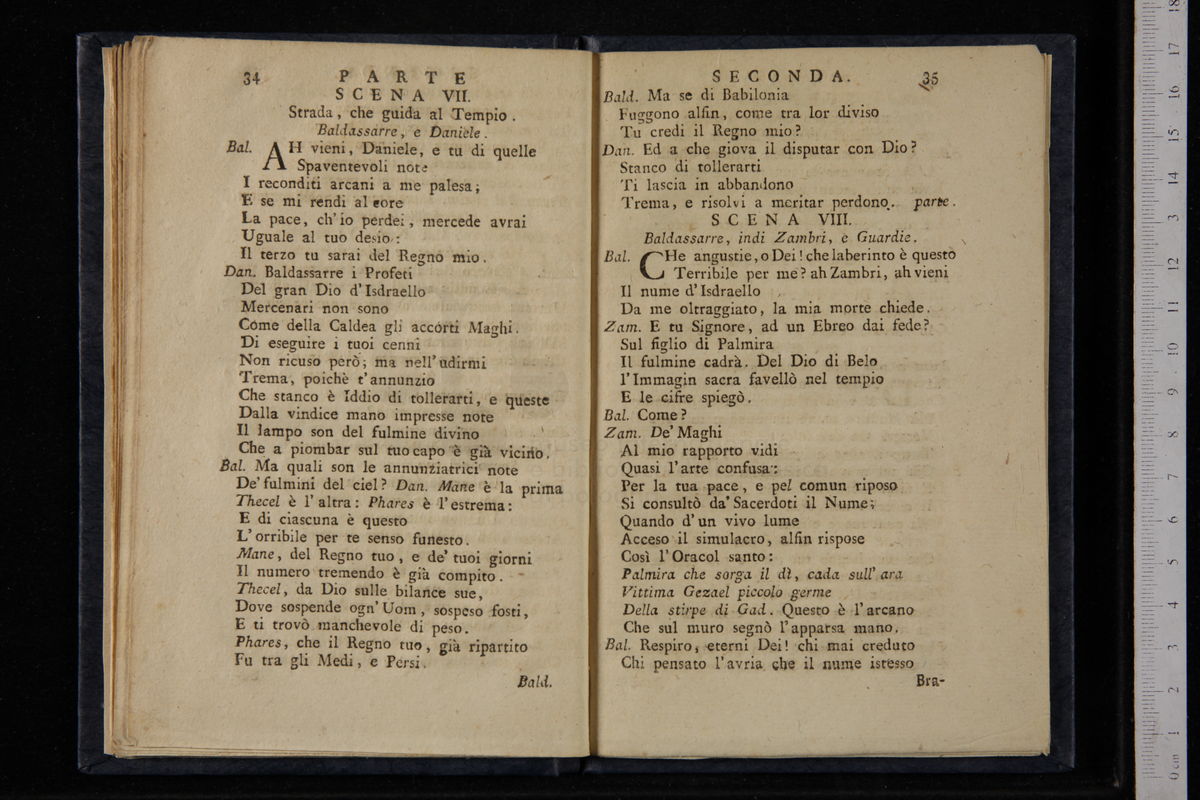 34 PARTE
SCENA VII.
Strada, che guida al Tempio.
Baldassarre, e Daniele.
Bal. AH vieni, Daniele, e tu di quelle
Spaventevoli note
I reconditi arcani a me palesa;
E se mi rendi al core
La pace, ch'io perdei, mercede avrai
Uguale al tuo desio:
Il terzo tu sarai del Regno mio.
Dan. Baldassarre i Profeti
Del gran Dio d'Isdraello
Mercenari non sono
Come della Caldea gli accorti Maghi.
Di eseguire i tuoi cenni
Non ricuso però; ma nell'udirmi
Trema, poichè t'annunzio
Che stanco è Iddio di tollerarti, e queste
Dalla vindice mano impresse note
Il lampo son del fulmine divino
Che a piombar sul tuo capo è già vicino.
Bal. Ma quali son le annunziatrici note
De' fulmini del ciel? Dan. Mane è la prima
Thecel è l'altra: Phares è l'estrema:
E di ciascuna è questo
L'orribile per te senso funesto.
Mane, del Regno tuo, e de' tuoi giorni
Il numero tremendo è già compito.
Thecel, da Dio sulle bilance sue,
Dove sospende ogn'Uom, sospeso fosti,
E ti trovò manchevole di peso.
Phares, che il Regno tuo, già ripartito
Fu tra gli Medi, e Persi.
Bald.
SECONDA. 35
Bald. Ma se di Babilonia
Fuggono alfin, come tra lor diviso
Tu credi il Regno mio?
Dan. Ed a che giova il disputar con Dio?
Stanco di tollerarti
Ti lascia in abbandono
Trema, e risolvi a meritar perdono. parte.
SCENA VIII.
Baldassarre, indi Zambri, e Guardie.
Bal. CHe angustie, o Dei! che laberinto è questo
Terribile per me? ah Zambri, ah vieni
Il nume d'Isdraello
Da me oltraggiato, la mia morte chiede.
Zam. E tu Signore, ad un Ebreo dai fede?
Sul figlio di Palmira
Il fulmine cadrà. Del Dio di Belo
l'Immagin sacra favellò nel tempio
E le cifre spiegò.
Bal. Come?
Zam. De' Maghi
Al mio rapporto vidi
Quasi l'arte confusa:
Per la tua pace, e pel comun riposo
Si consultò da' Sacerdoti il Nume;
Quando d'un vivo lume
Acceso il simulacro, alfin rispose
Così l'Oracol santo:
Palmira che sorga il dì, cada sull'ara
Vittima Gezael piccolo germe
Della stirpe di Gad. Questo è l'arcano
Che sul muro segnò l'apparsa mano.
Bal. Respiro, eterni Dei! chi mai creduto
Chi pensato l'avria che il nume istesso
Bra-
0 cm 1 2 3 4 5 6 7 8 9 10 11 12 13 14 15 16 17 18